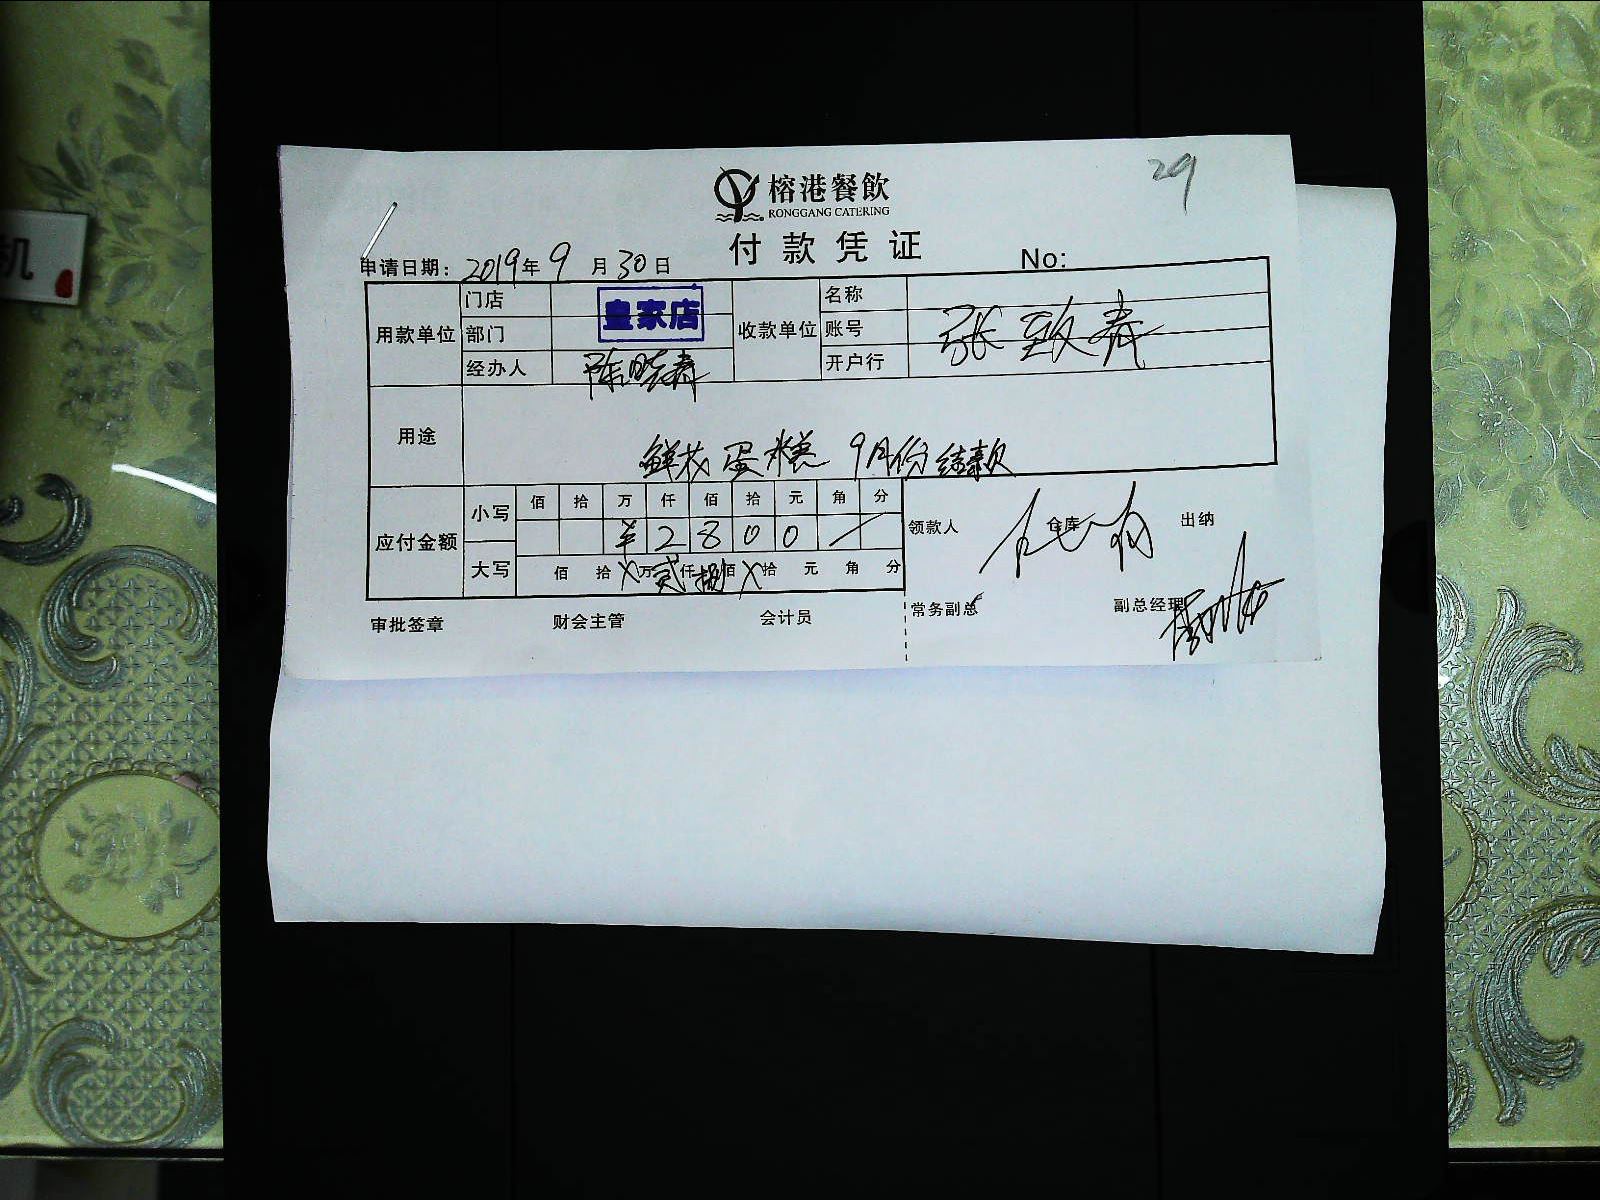 29
榕港餐飲
RONGGANG CATERING
付款凭证
申请日期：2019年9月30日 No:
用款单位 门店 皇家店 收款单位 名称 张致春
部门 账号
经办人 陈晓春 开户行
用途 鲜花蛋糕 9月份结款
应付金额 小写 佰 拾 万 仟 佰 拾 元 角 分
¥ 2 8 0 0 /
领款人 仓库 出纳
大写 佰 拾 X 万 贰 仟 捌 佰 X 拾 元 角 分
常务副总 副总经理
审批签章 财会主管 会计员
机